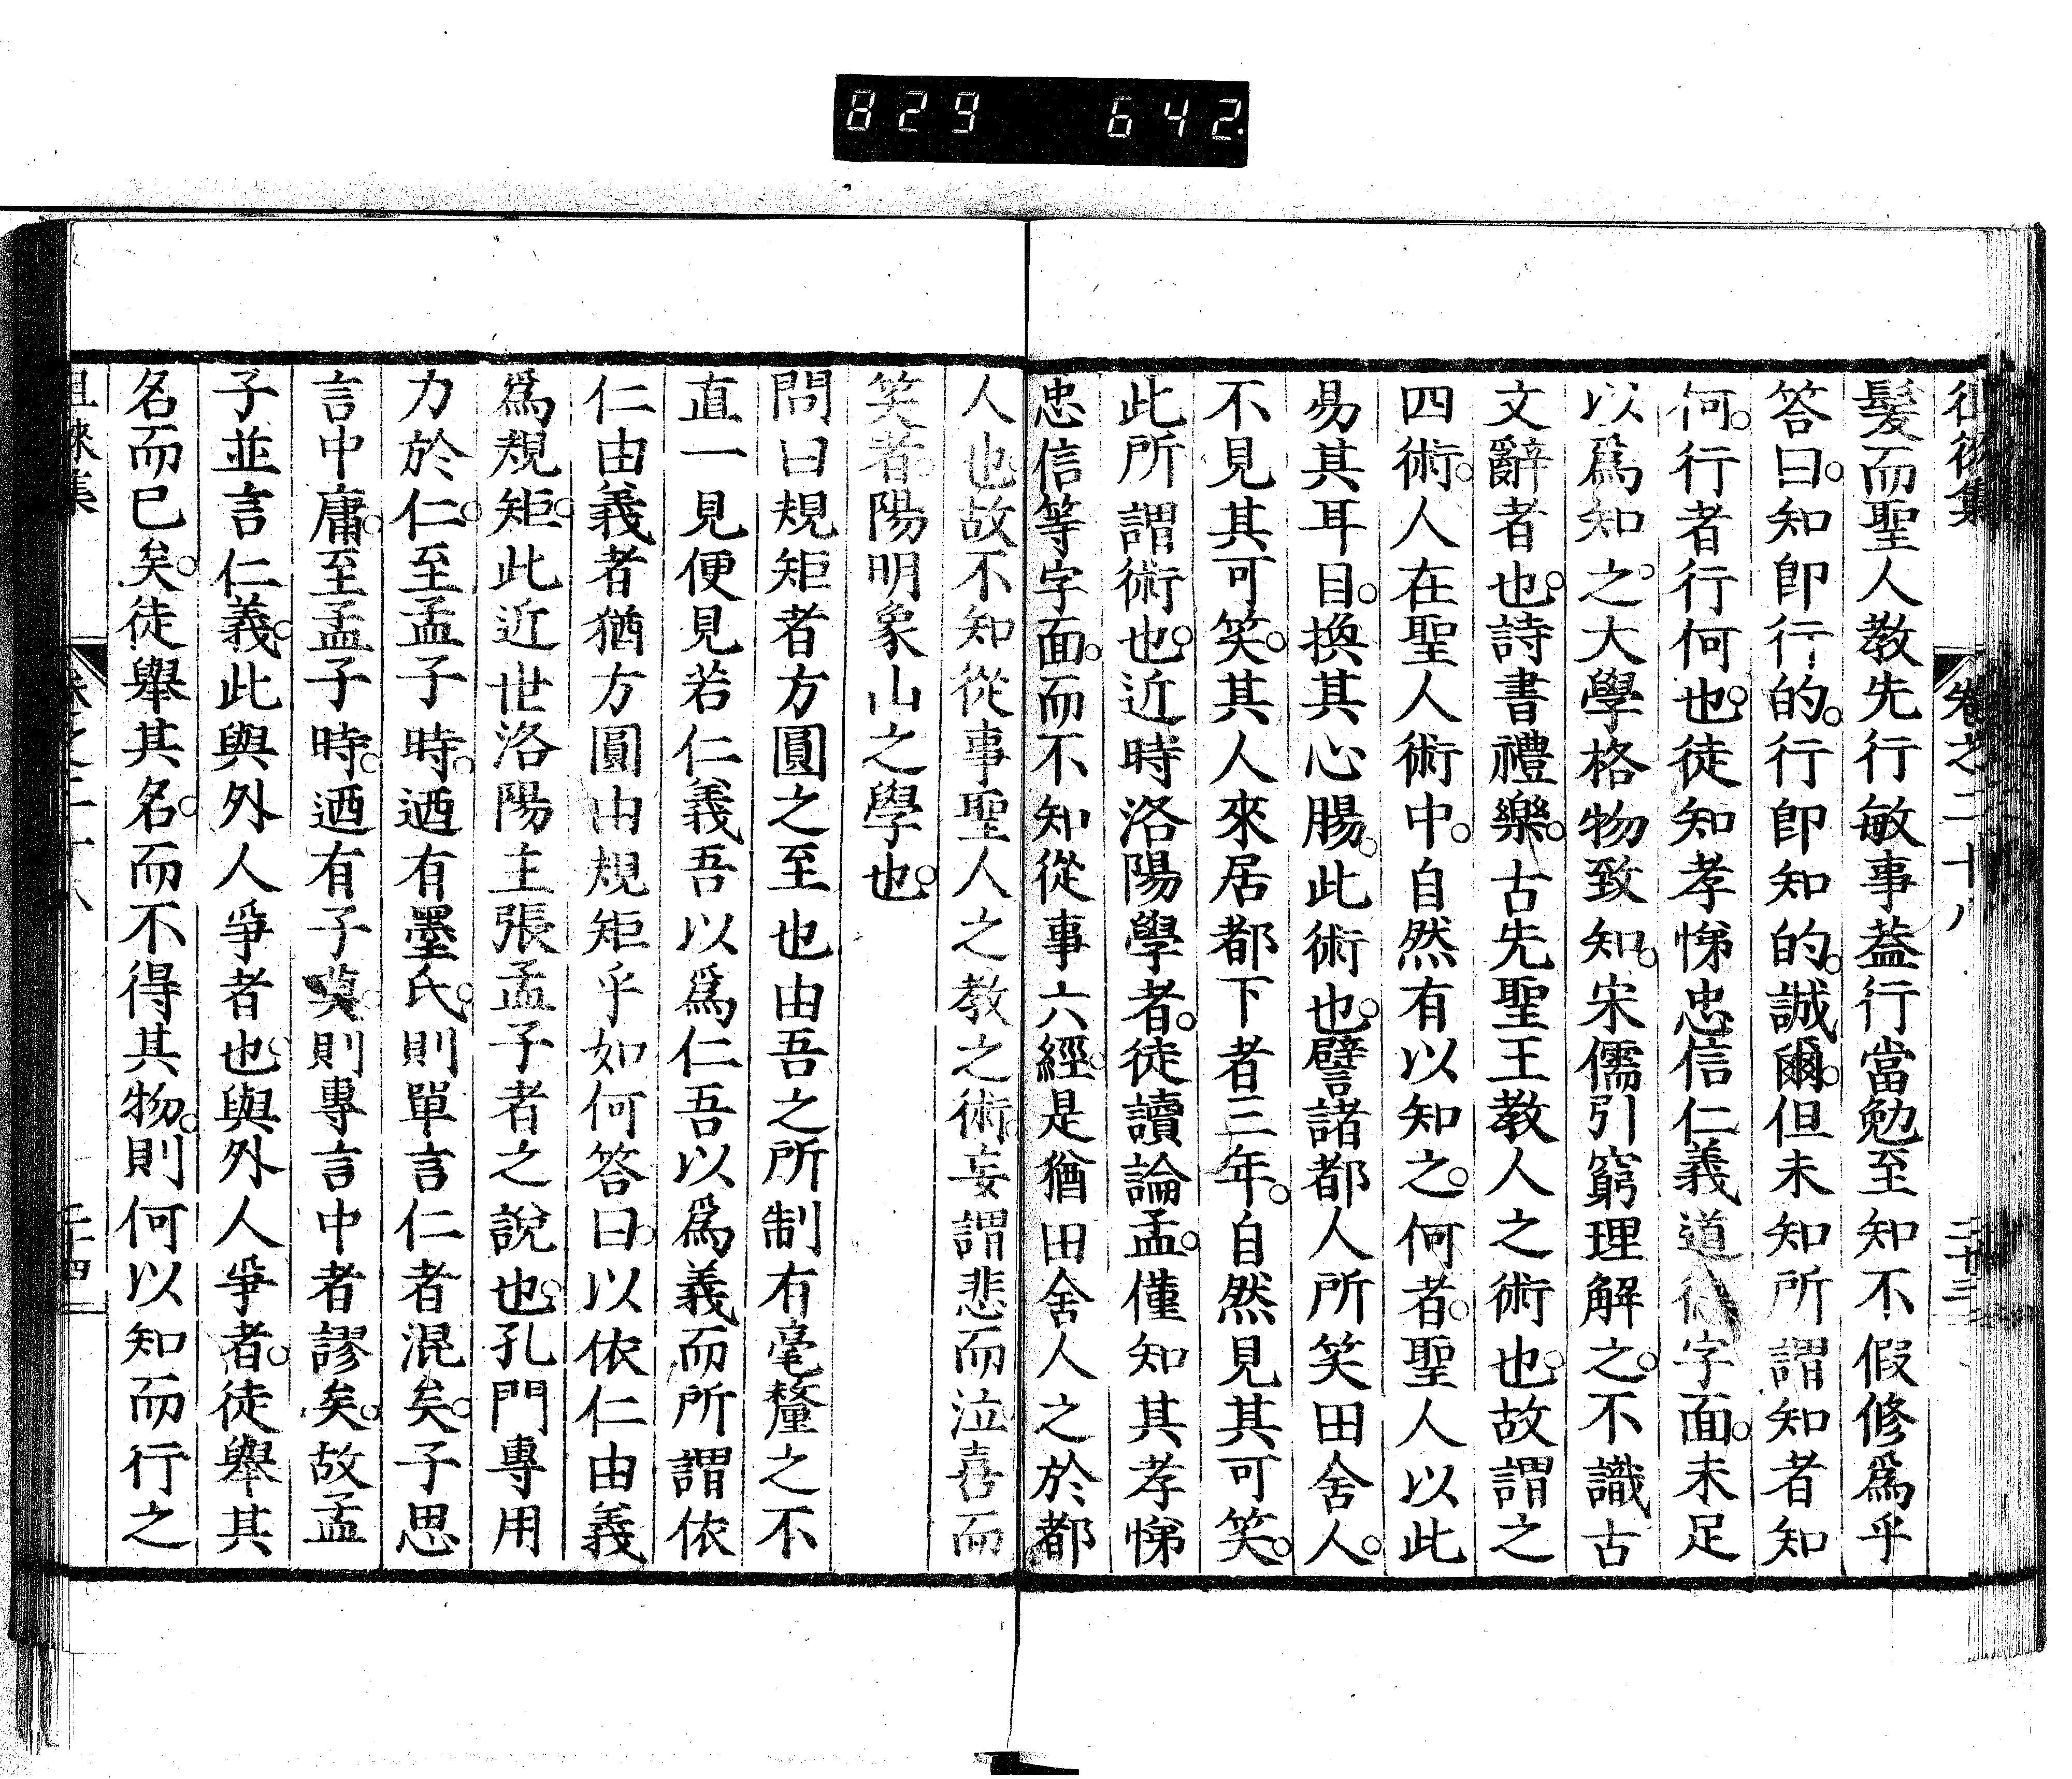 829 642
徂徠集 卷之二十八
髮而聖人教先行敏事蓋行當勉至知不假修爲乎
答曰。知卽行的。行卽知的。誠爾。但未知所謂知者知
何。行者行何也。徒知孝悌忠信仁義道德字面。未足
以爲知之。大學格物致知。宋儒引窮理解之。不識古
文辭者也。詩書禮樂。古先聖王教人之術也。故謂之
四術。人在聖人術中。自然有以知之。何者。聖人以此
易其耳目。換其心腸。此術也。譬諸都人所笑田舍人。
不見其可笑。其人來居都下者三年。自然見其可笑。
此所謂術也。近時洛陽學者。徒讀論孟。僅知其孝悌
忠信等字面。而不知從事六經。是猶田舍人之於都
人也。故不知從事聖人之教之術。妄謂悲而泣喜而
笑者。陽明象山之學也。
問曰規矩者方圓之至也由吾之所制有毫釐之不
直一見便見若仁義吾以爲仁吾以爲義而所謂依
仁由義者猶方圓由規矩乎如何答曰。以依仁由義
爲規矩。此近世洛陽主張孟子者之說也。孔門專用
力於仁。至孟子時。迺有墨氏。則單言仁者混矣。子思
言中庸。至孟子時。迺有子莫。則專言中者謬矣。故孟
子並言仁義。此與外人爭者也。與外人爭者。徒舉其
名而已矣。徒舉其名。而不得其物。則何以知而行之